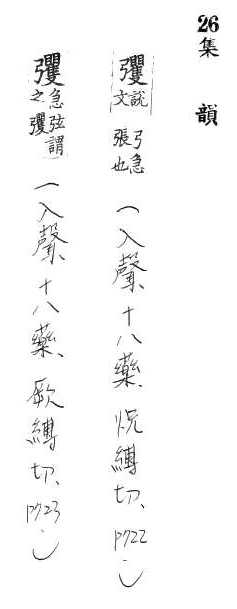 26 集韻
彏說文弓急張也（入聲、十八藥、怳縛切、P722.）
彏急弦謂之彏（入聲、十八藥、厥縛切、P723.）